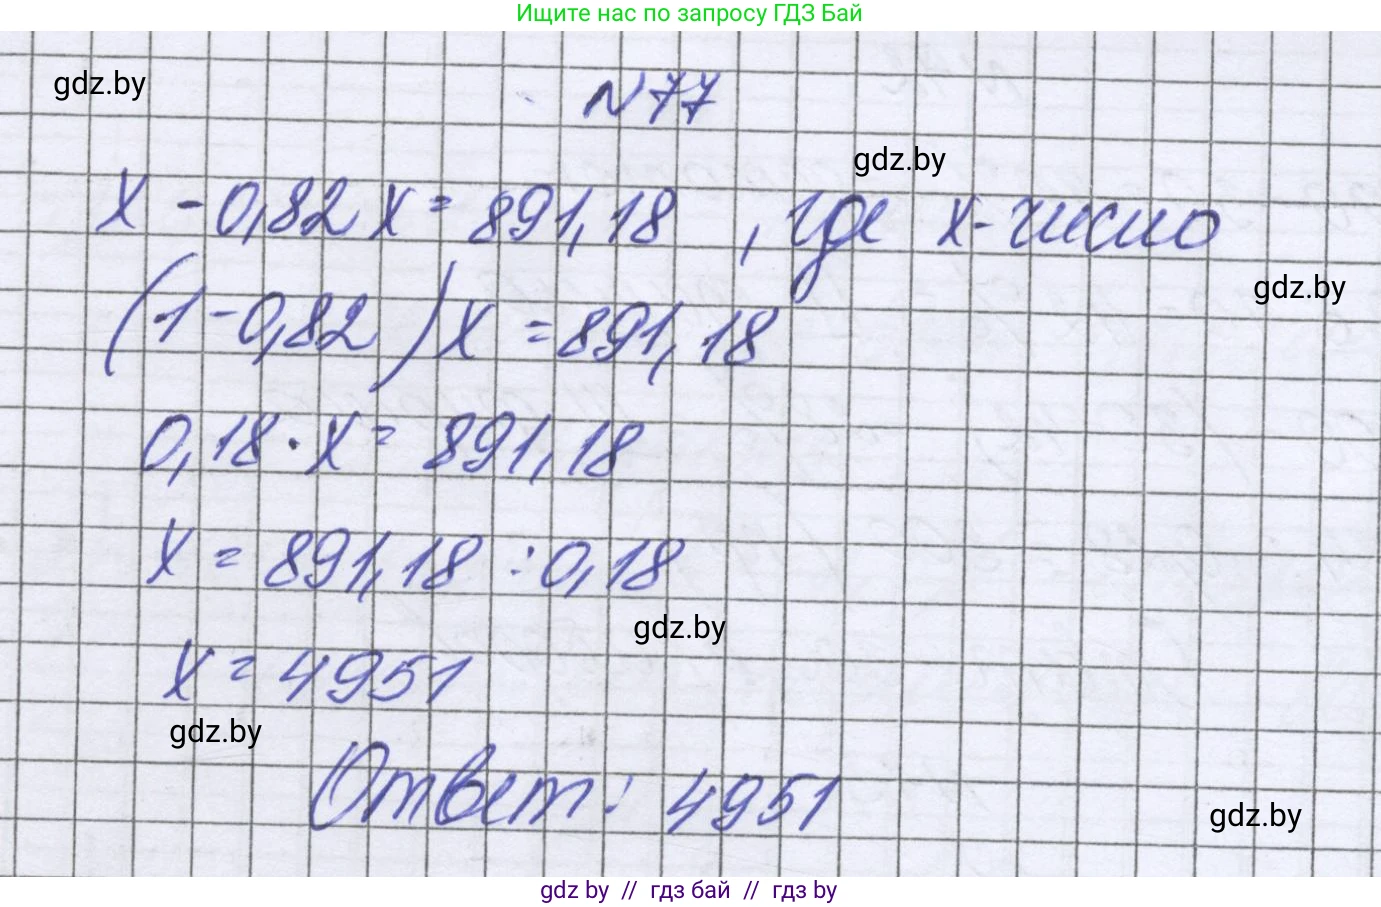 Ищите нас по запросу ГДЗ Бай
gdz.by
N77
gdz.by
x - 0,82x = 891,18 , где x - число
gdz.by
(1 - 0,82)x = 891,18
0,18 · x = 891,18
x = 891,18 : 0,18
gdz.by
x = 4951
gdz.by
Ответ: 4951
gdz.by
gdz by // гдз бай // гдз by